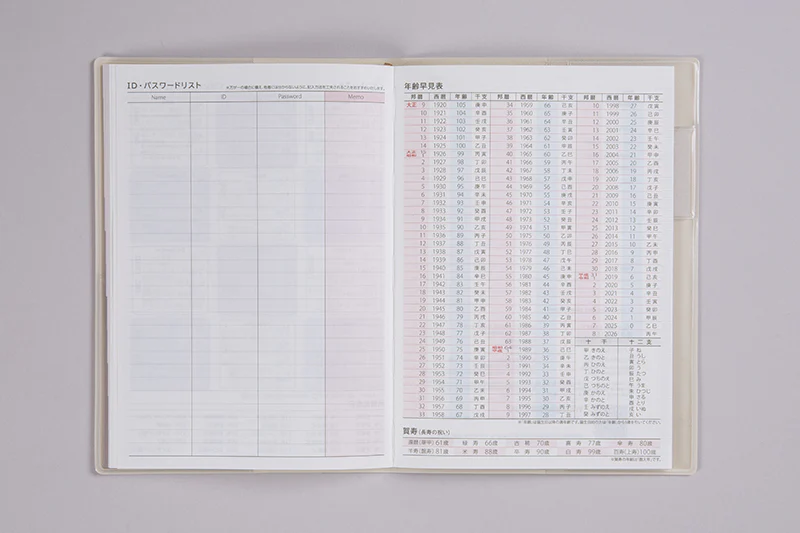 ID・パスワードリスト
Name ID Password Memo
年齢早見表
邦暦 西暦 年齢 干支 邦暦 西暦 年齢 干支 邦暦 西暦 年齢 干支
大正 9 1920 105 庚申 34 1959 66 己亥 10 1998 27 戊寅
10 1921 104 辛酉 35 1960 65 庚子 11 1999 26 己卯
11 1922 103 壬戌 36 1961 64 辛丑 12 2000 25 庚辰
12 1923 102 癸亥 37 1962 63 壬寅 13 2001 24 辛巳
13 1924 101 甲子 38 1963 62 癸卯 14 2002 23 壬午
14 1925 100 乙丑 39 1964 61 甲辰 15 2003 22 癸未
1926 99 丙寅 40 1965 60 乙巳 16 2004 21 甲申
2 1927 98 丁卯 41 1966 59 丙午 17 2005 20 乙酉
3 1928 97 戊辰 42 1967 58 丁未 18 2006 19 丙戌
4 1929 96 己巳 43 1968 57 戊申 19 2007 18 丁亥
5 1930 95 庚午 44 1969 56 己酉 20 2008 17 戊子
6 1931 94 辛未 45 1970 55 庚戌 21 2009 16 己丑
7 1932 93 壬申 46 1971 54 辛亥 22 2010 15 庚寅
8 1933 92 癸酉 47 1972 53 壬子 23 2011 14 辛卯
9 1934 91 甲戌 48 1973 52 癸丑 24 2012 13 壬辰
10 1935 90 乙亥 49 1974 51 甲寅 25 2013 12 癸巳
11 1936 89 丙子 50 1975 50 乙卯 26 2014 11 甲午
12 1937 88 丁丑 51 1976 49 丙辰 27 2015 10 乙未
13 1938 87 戊寅 52 1977 48 丁巳 28 2016 9 丙申
14 1939 86 己卯 53 1978 47 戊午 29 2017 8 丁酉
15 1940 85 庚辰 54 1979 46 己未 30 2018 7 戊戌
16 1941 84 辛巳 55 1980 45 庚申 2019 6 己亥
17 1942 83 壬午 56 1981 44 辛酉 2 2020 5 庚子
18 1943 82 癸未 57 1982 43 壬戌 3 2021 4 辛丑
19 1944 81 甲申 58 1983 42 癸亥 4 2022 3 壬寅
20 1945 80 乙酉 59 1984 41 甲子 5 2023 2 癸卯
21 1946 79 丙戌 60 1985 40 乙丑 6 2024 1 甲辰
22 1947 78 丁亥 61 1986 39 丙寅 7 2025 0 乙巳
23 1948 77 戊子 62 1987 38 丁卯 8 2026 丙午
24 1949 76 己丑 63 1988 37 戊辰 十干 十二支
25 1950 75 庚寅 1989 36 己巳 甲 きのえ 子 ね
26 1951 74 辛卯 2 1990 35 庚午 乙 きのと 丑 うし
27 1952 73 壬辰 3 1991 34 辛未 丙 ひのえ 寅 とら
28 1953 72 癸巳 4 1992 33 壬申 丁 ひのと 卯 う
29 1954 71 甲午 5 1993 32 癸酉 戊 つちのえ 辰 たつ
30 1955 70 乙未 6 1994 31 甲戌 己 つちのと 巳 み
31 1956 69 丙申 7 1995 30 乙亥 庚 かのえ 午 うま
32 1957 68 丁酉 8 1996 29 丙子 辛 かのと 未 ひつじ
33 1958 67 戊戌 9 1997 28 丁丑 壬 みずのえ 申 さる
癸 みずのと 酉 とり
戌 いぬ
亥 い
賀寿（長寿の祝い）
還暦(華甲)61歳 緑寿 66歳 古稀 70歳 喜寿 77歳 傘寿 80歳
半寿(盤寿)81歳 米寿 88歳 卒寿 90歳 白寿 99歳 百寿(上寿)100歳